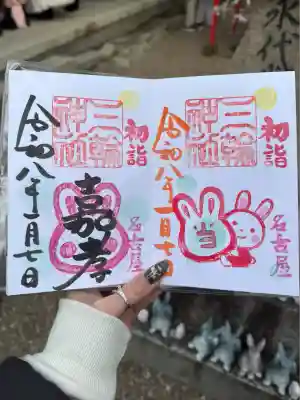 永代
初詣
三輪
神社
令和八年一月七日
名古屋
初詣
三輪
神社
嘉孝
令和八年一月七日
名古屋